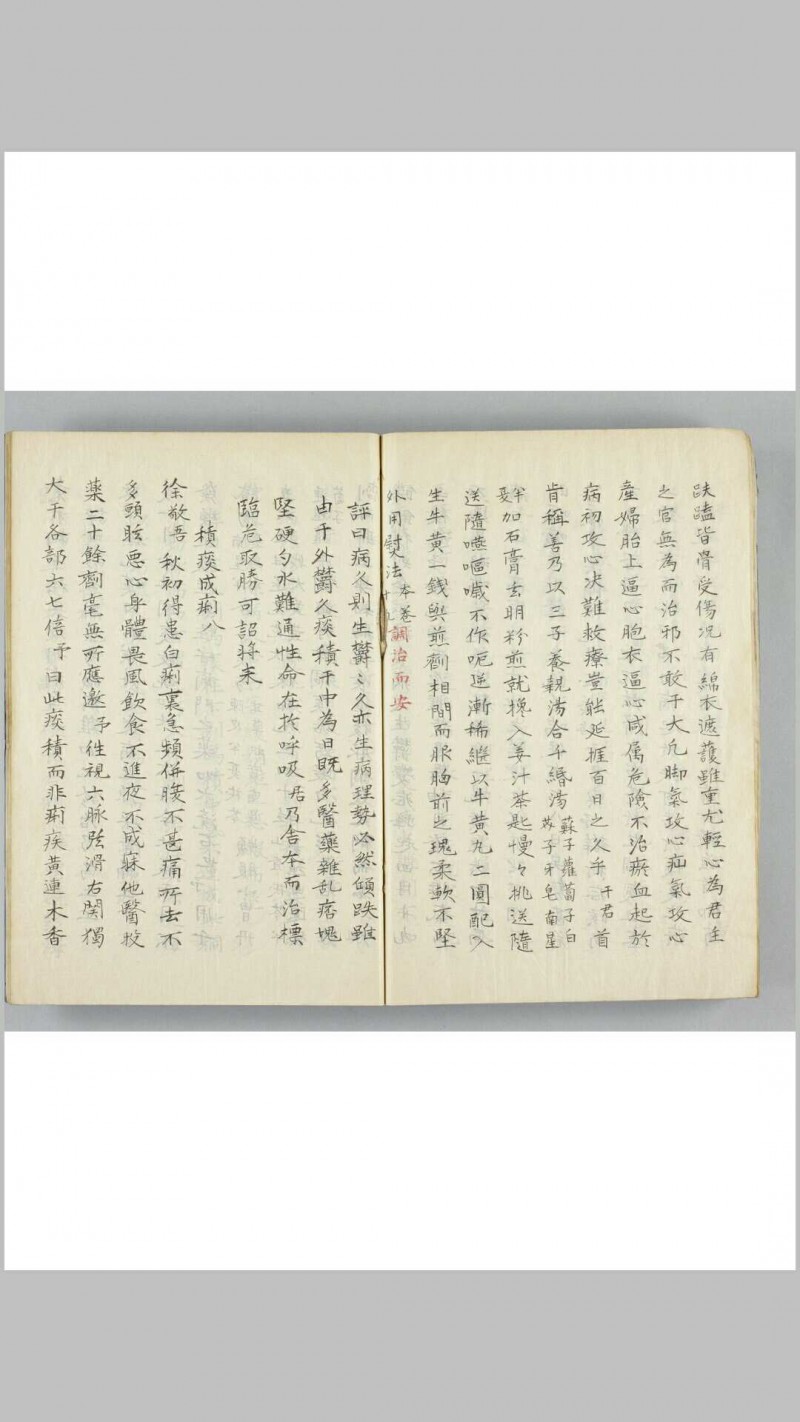 趺蹅皆骨受傷况有綿衣遮護雖重尤輕心為君主
之官無為而治邪不敢干大凡脚氣攻心疝氣攻心
產婦胎上逼心胞衣逼心咸属危險不治瘀血起於
病初攻心决難救療豈能延捱百日之久乎千君首
肯稱善乃以三子養親湯合千緡湯蘇子蘿蔔子白芥子牙皂南星
半夏加石膏玄明粉煎就攙入姜汁茶匙慢々挑送隨
送隨嚥嘔噦不作呃逆漸稀繼以牛黄丸二圓配入
生牛黄一錢與煎劑相間而服胸前之瑰柔軟不堅
外用熨法本卷調治而安
評曰病久則生鬱〻久亦生病理勢必然傾跌雖
由于外鬱久痰積于中為日既多醫藥雜乱痞塊
堅硬勺水難通性命在扵呼吸君乃舍本而治標
臨危取勝可詔將来
積痰成痢八
徐敬吾秋初得患白痢裏急頻併腹不甚痛所去不
多頭眩惡心身體畏風飲食不進夜不成寐他醫投
藥二十餘劑毫無所應邀予徃視六脉弦滑右関獨
大于各部六七倍予曰此痰積而非痢疾黃連木香